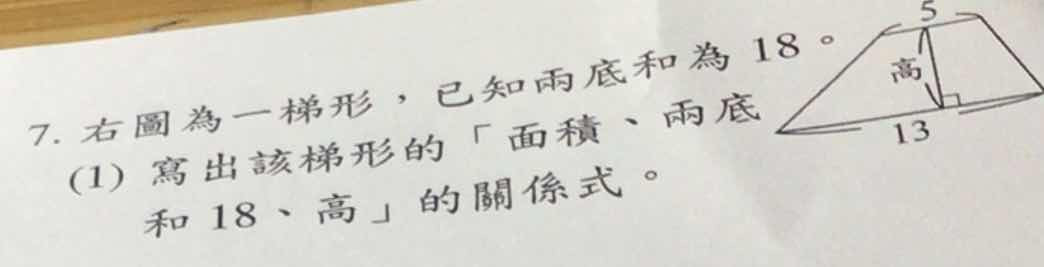 7. 右圖為一梯形，已知兩底和為 18。
(1) 寫出該梯形的「面積、兩底
和 18、高」的關係式。
5
高
13